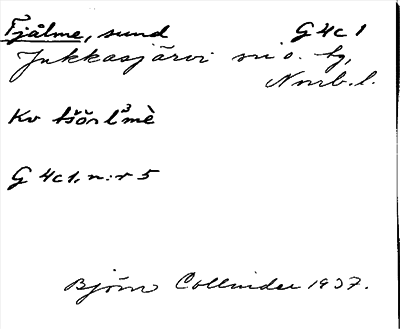 Tjålme, sund G4c1
Jukkasjärvi sn o. tg,
Nnrb.l.
Kv
G 4c1, n:r 5
Björn Collinder 1937.